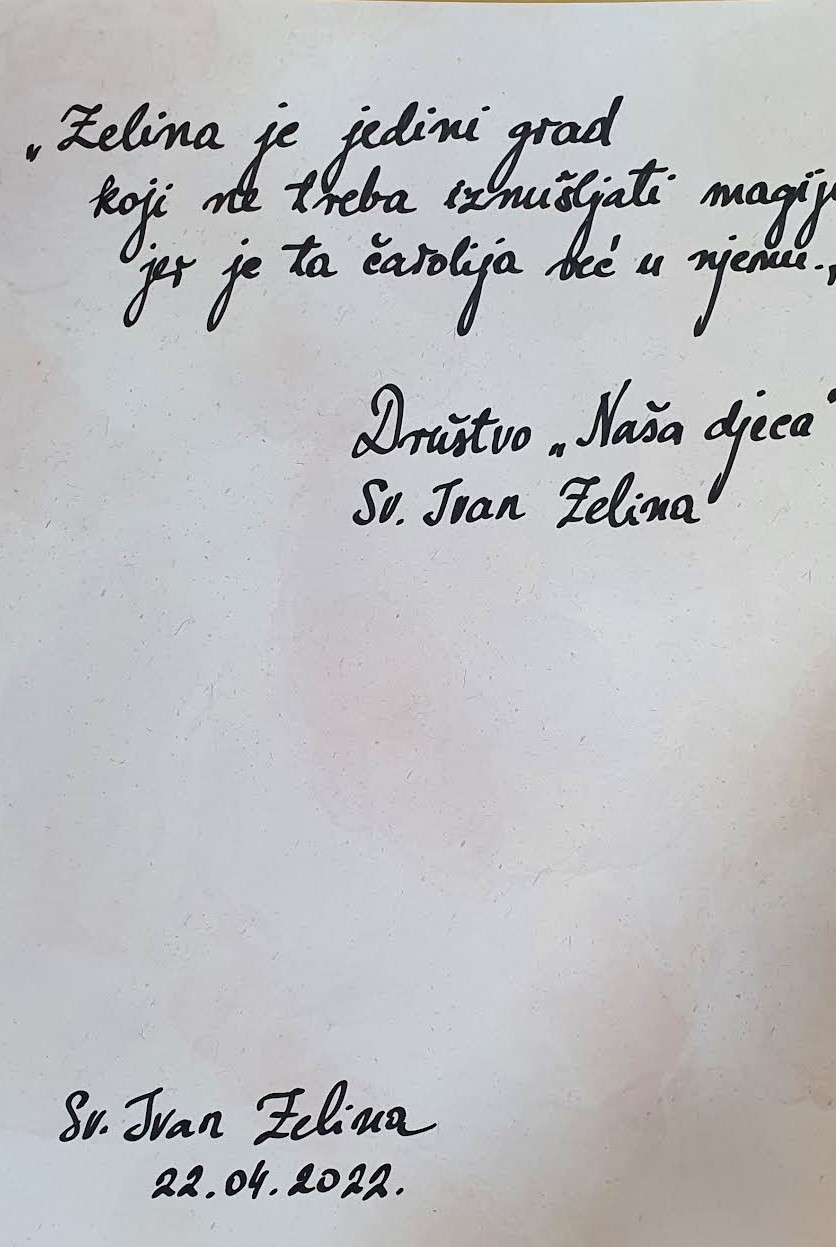 „Zelina je jedini grad
koji ne treba izmišljati magij
jer je ta čarolija već u njemu.„
Društvo „Naša djeca"
Sv. Ivan Zelina
Sv. Ivan Zelina
22.04.2022.